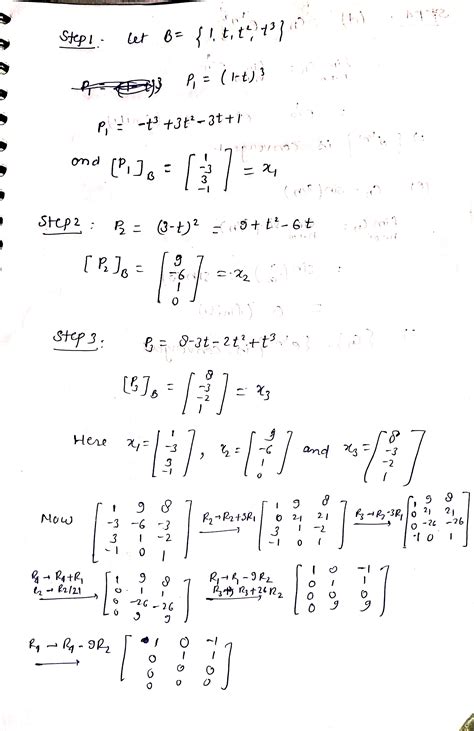 Step1. Let B = {1, t, t², t³}
P₁ = (1-t)³
P₁ = -t³ + 3t² - 3t + 1
and [P₁]_B = [1 -3 3 -1] = x₁
Step2 : P₂ = (3-t)² = 9 + t² - 6t
[P₂]_B = [9 -6 1 0] = x₂
Step3: P₃ = 8-3t-2t²+t³
[P₃]_B = [8 -3 -2 1] = x₃
Here x₁ = [1 -3 3 -1], x₂ = [9 -6 1 0] and x₃ = [8 -3 -2 1]
Now [1 9 8; -3 -6 -3; 3 1 -2; -1 0 1] R₂→R₂+3R₁ [1 9 8; 0 21 21; 3 1 -2; -1 0 1] R₃→R₃-3R₁ [1 9 8; 0 21 21; 0 -26 -26; -1 0 1]
R₄→R₄+R₁ R₂→R₂/21 [1 9 8; 0 1 1; 0 -26 -26; 0 9 9] R₁→R₁-9R₂ R₃→R₃+26R₂ [1 0 -1; 0 1 1; 0 0 0; 0 9 9]
R₄→R₄-9R₂ [1 0 -1; 0 1 1; 0 0 0; 0 0 0]